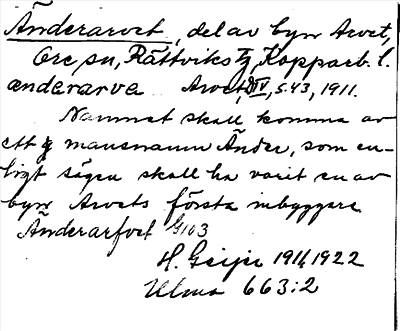 Änderarvet, del av byn Arvet,
Ore sn, Rättviks tg, Kopparb. l.
änderarve Arvet, DIV, s. 43, 1911.
Namnet skall komma av
ett mansnamn Änder, som en-
ligt sägen skall ha varit en av
byn Arvets första inbyggare
Änderarfvet G163
H. Geijer 1922
Ulma 663:2